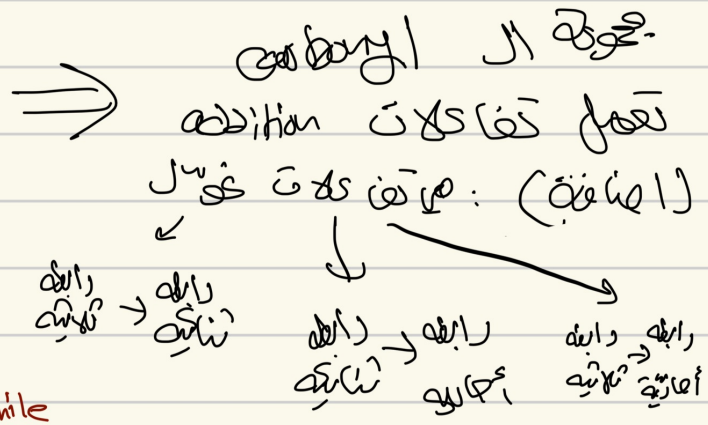 مجموعة ال carbonyl
تعمل تفاعلات addition
(اضافة) : هي تفاعلات تحول
رابطه ثلاثيه → رابطه ثنائيه
رابطه ثنائيه → رابطه أحاديه
رابطه ثلاثيه → رابطه أحاديه